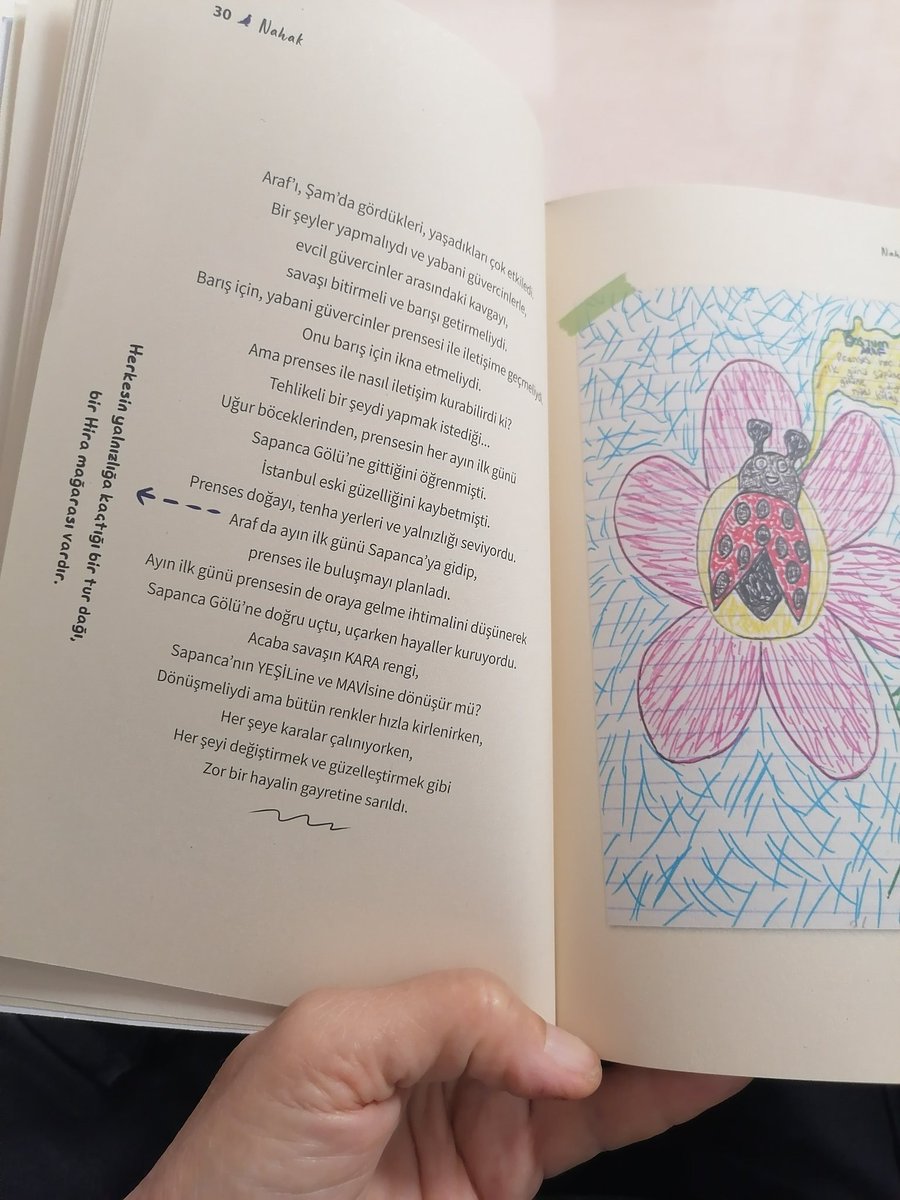 30 Nahak
Araf'ı, Şam'da gördükleri, yaşadıkları çok etkiledi.
Bir şeyler yapmalıydı ve yabani güvercinlerle,
evcil güvercinler arasındaki kavgayı,
savaşı bitirmeli ve barışı getirmeliydi.
Barış için, yabani güvercinler prensesi ile iletişime geçmeliydi.
Onu barış için ikna etmeliydi.
Ama prenses ile nasıl iletişim kurabilirdi ki?
Tehlikeli bir şeydi yapmak istediği...
Uğur böceklerinden, prensesin her ayın ilk günü
Sapanca Gölü'ne gittiğini öğrenmişti.
İstanbul eski güzelliğini kaybetmişti.
Prenses doğayı, tenha yerleri ve yalnızlığı seviyordu.
Araf da ayın ilk günü Sapanca'ya gidip,
prenses ile buluşmayı planladı.
Ayın ilk günü prensesin de oraya gelme ihtimalini düşünerek
Sapanca Gölü'ne doğru uçtu, uçarken hayaller kuruyordu.
Acaba savaşın KARA rengi,
Sapanca'nın YEŞİLine ve MAVİsine dönüşür mü?
Dönüşmeliydi ama bütün renkler hızla kirlenirken,
Her şeye karalar çalınıyorken,
Her şeyi değiştirmek ve güzelleştirmek gibi
Zor bir hayalin gayretine sarıldı.
Herkesin yalnızlığa kaçtığı bir tur dağı,
bir Hira mağarası vardır.
ilk günü